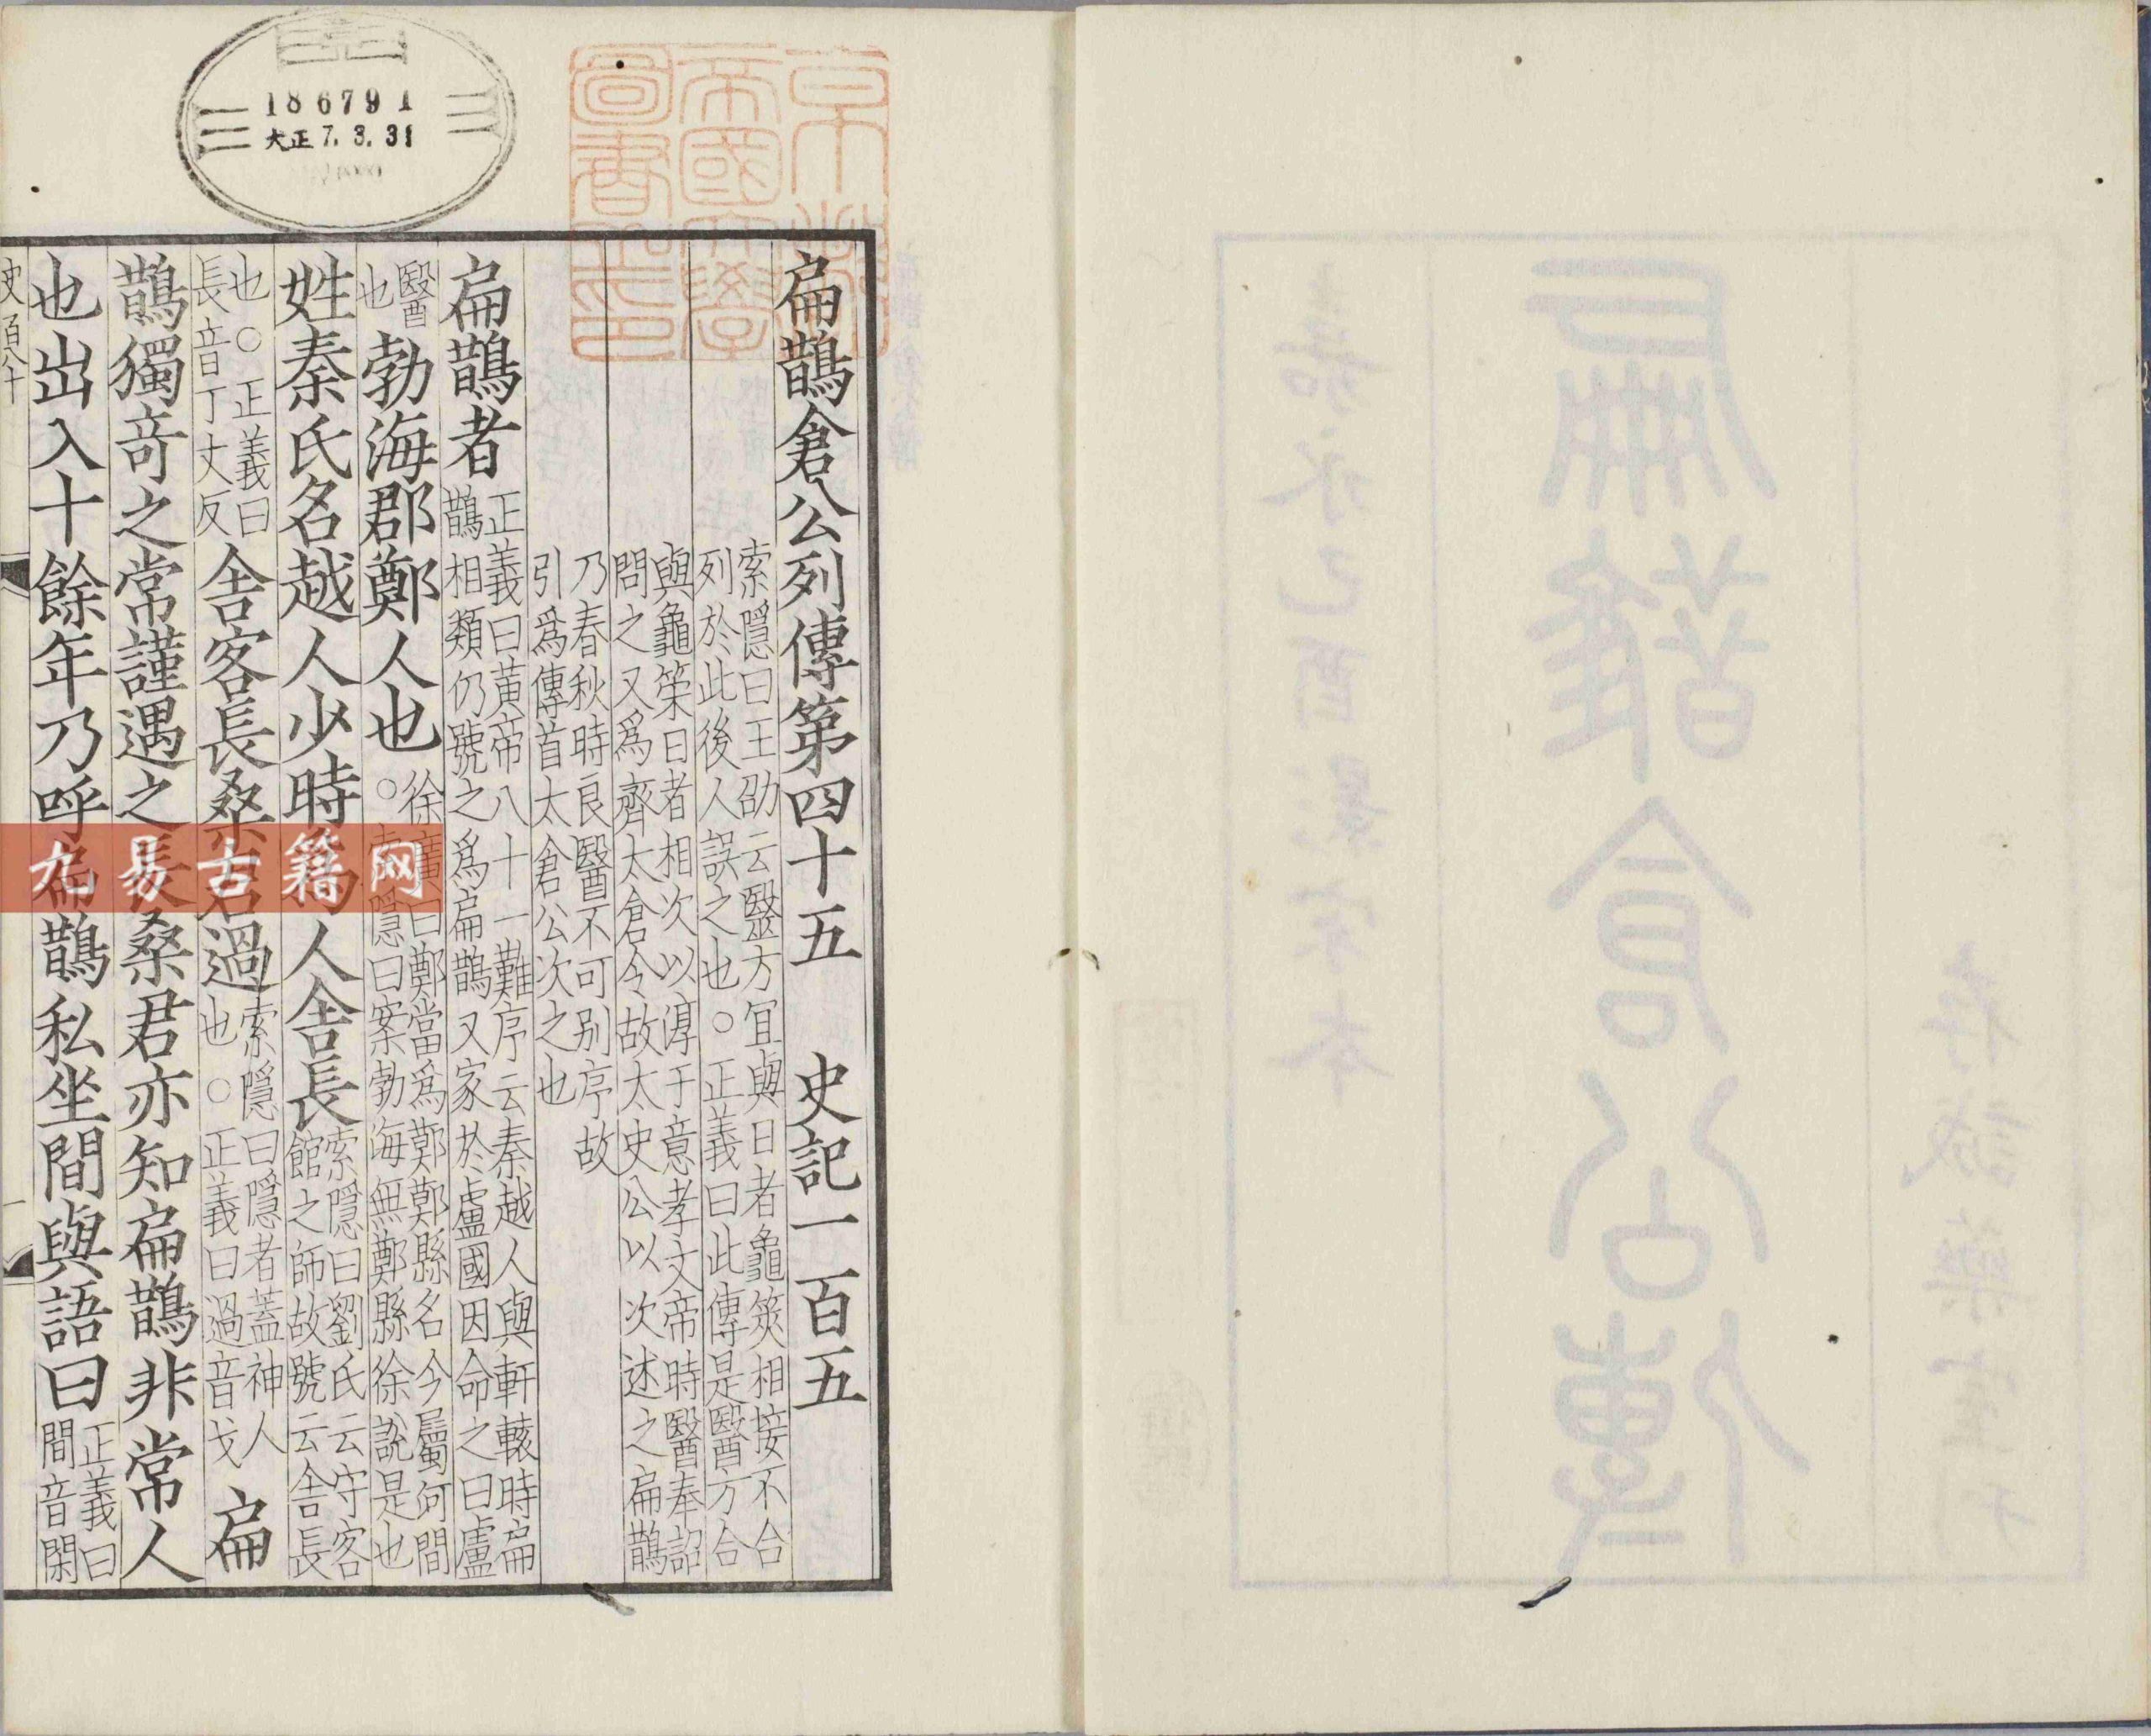 扁鵲倉公列傳第四十五　史記一百五
索隱曰王劭云醫方冝與日者龜筴相接不合
列於此後人誤之也○正義曰此傳是醫方合
與龜筞日者相次以淳于意孝文帝時醫奉詔
問之又爲齊太倉令故太史公以次述之扁鵲
乃春秋時良醫不可别序故
引爲傳首太倉公次之也
扁鵲者
正義曰黃帝八十一難序云秦越人與軒轅時扁
鵲相類仍號之爲扁鵲又家於盧國因命之曰盧
醫
也
勃海郡鄭人也
徐廣曰鄭當爲鄚鄚縣名今屬河間
○索隱曰案勃海無鄭縣徐說是也
姓秦氏名越人少時爲人舍長
索隱曰劉氏云守客
館之師故號云舍長
也○正義曰
長音丁丈反
舍客長桑君過
索隱曰隱者蓋神人
也○正義曰過音戈
扁
鵲獨竒之常謹遇之長桑君亦知扁鵲非常人
也出入十餘年乃呼扁鵲私坐間與語曰
正義曰
間音閑
史百八十
一
186791
大正7.3.31
京都
帝國大學
圖書之印
九易古籍网
扁鵲倉公傳